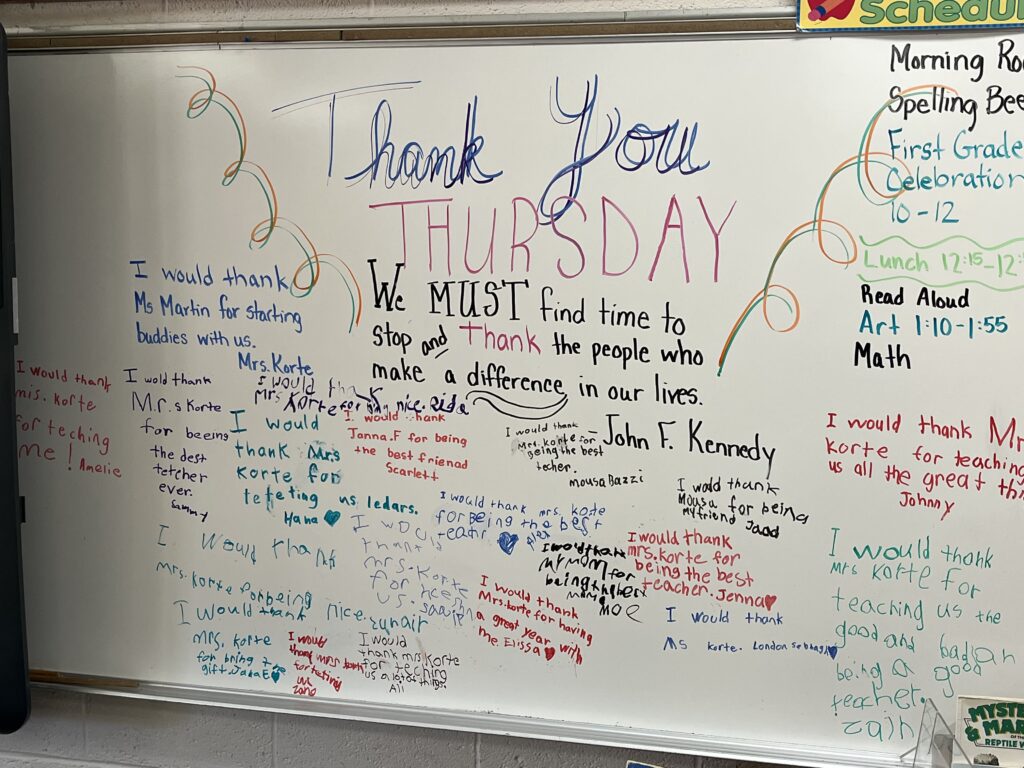 Schedul
Morning Ro
Spelling Bee
First Grade
Celebration
10-12
Lunch 12:15-12:
Read Aloud
Art 1:10-1:55
Math
Thank You
THURSDAY
We MUST find time to
stop and thank the people who
make a difference in our lives.
-John F. Kennedy
I would thank
Ms Martin for starting
buddies with us.
Mrs. Korte
I would thank
mis. Korte
for teching
me! Amelie
I wold thank
M.r.s Korte
for beeing
the dest
tetcher
ever.
Sammy
I would thank
Mrs Korte nice.
I would
thank Mrs
Korte for
us ledars.
Hana
I would thank
Janna.F for being
the best frienad
Scarlett
I would thank
Mrs. Korte for
Being the best
techer.
mousa Bazzi
I wold thank
Mousa for being
my friend Jaad
I would thank mrs. korte
for Being the best
Alex
I would
thank
mrs. Kort
for
us.
I would thank
Mrs. Korte for being
nice.
I would thank
my mom for
being the best
mom
Moe
I would thank
mrs. Korte for
being the best
teacher. Jenna
I would thank
Mrs. Korte for having
a great year with
me. Elissa
I would thank
Ms korte. London
I would thank
mrs. Korte
for bring the
gift. Jana E
I would
thank mrs
for
Zano
I would
thank mrs Korte
for teching
us a lot of things.
Ali
I would thank Mr
Korte for teaching
us all the great th
Johnny
I would thank
Mrs Korte for
teaching us the
good and bad an
being a good
teacher.
zain
MYSTE
& MAR
REPTILE